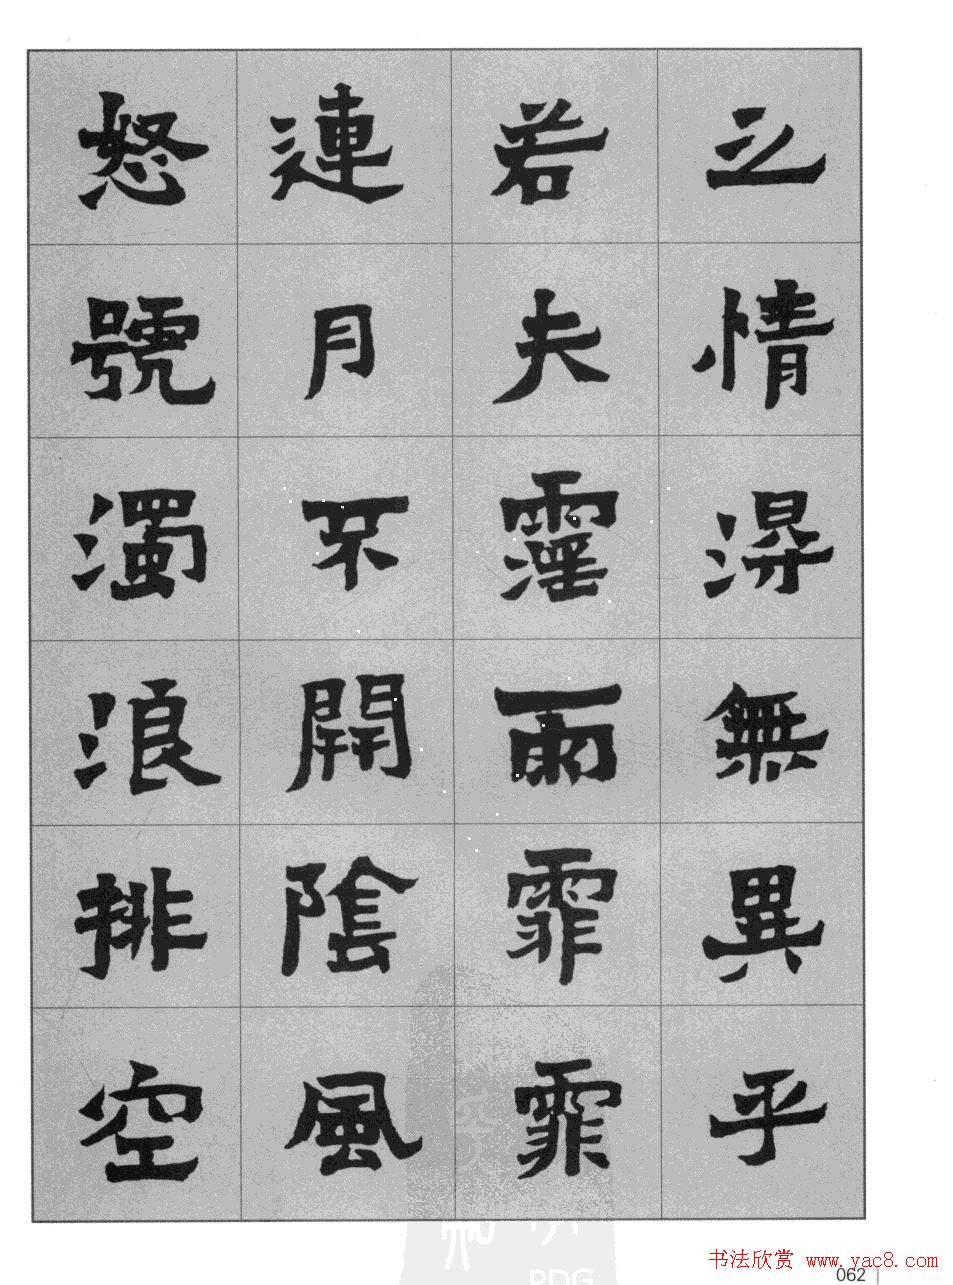 之情淂無異乎
若夫霪雨霏霏
連月不開陰風
怒號濁浪排空
书法欣赏 www.yac8.com
062
PDG